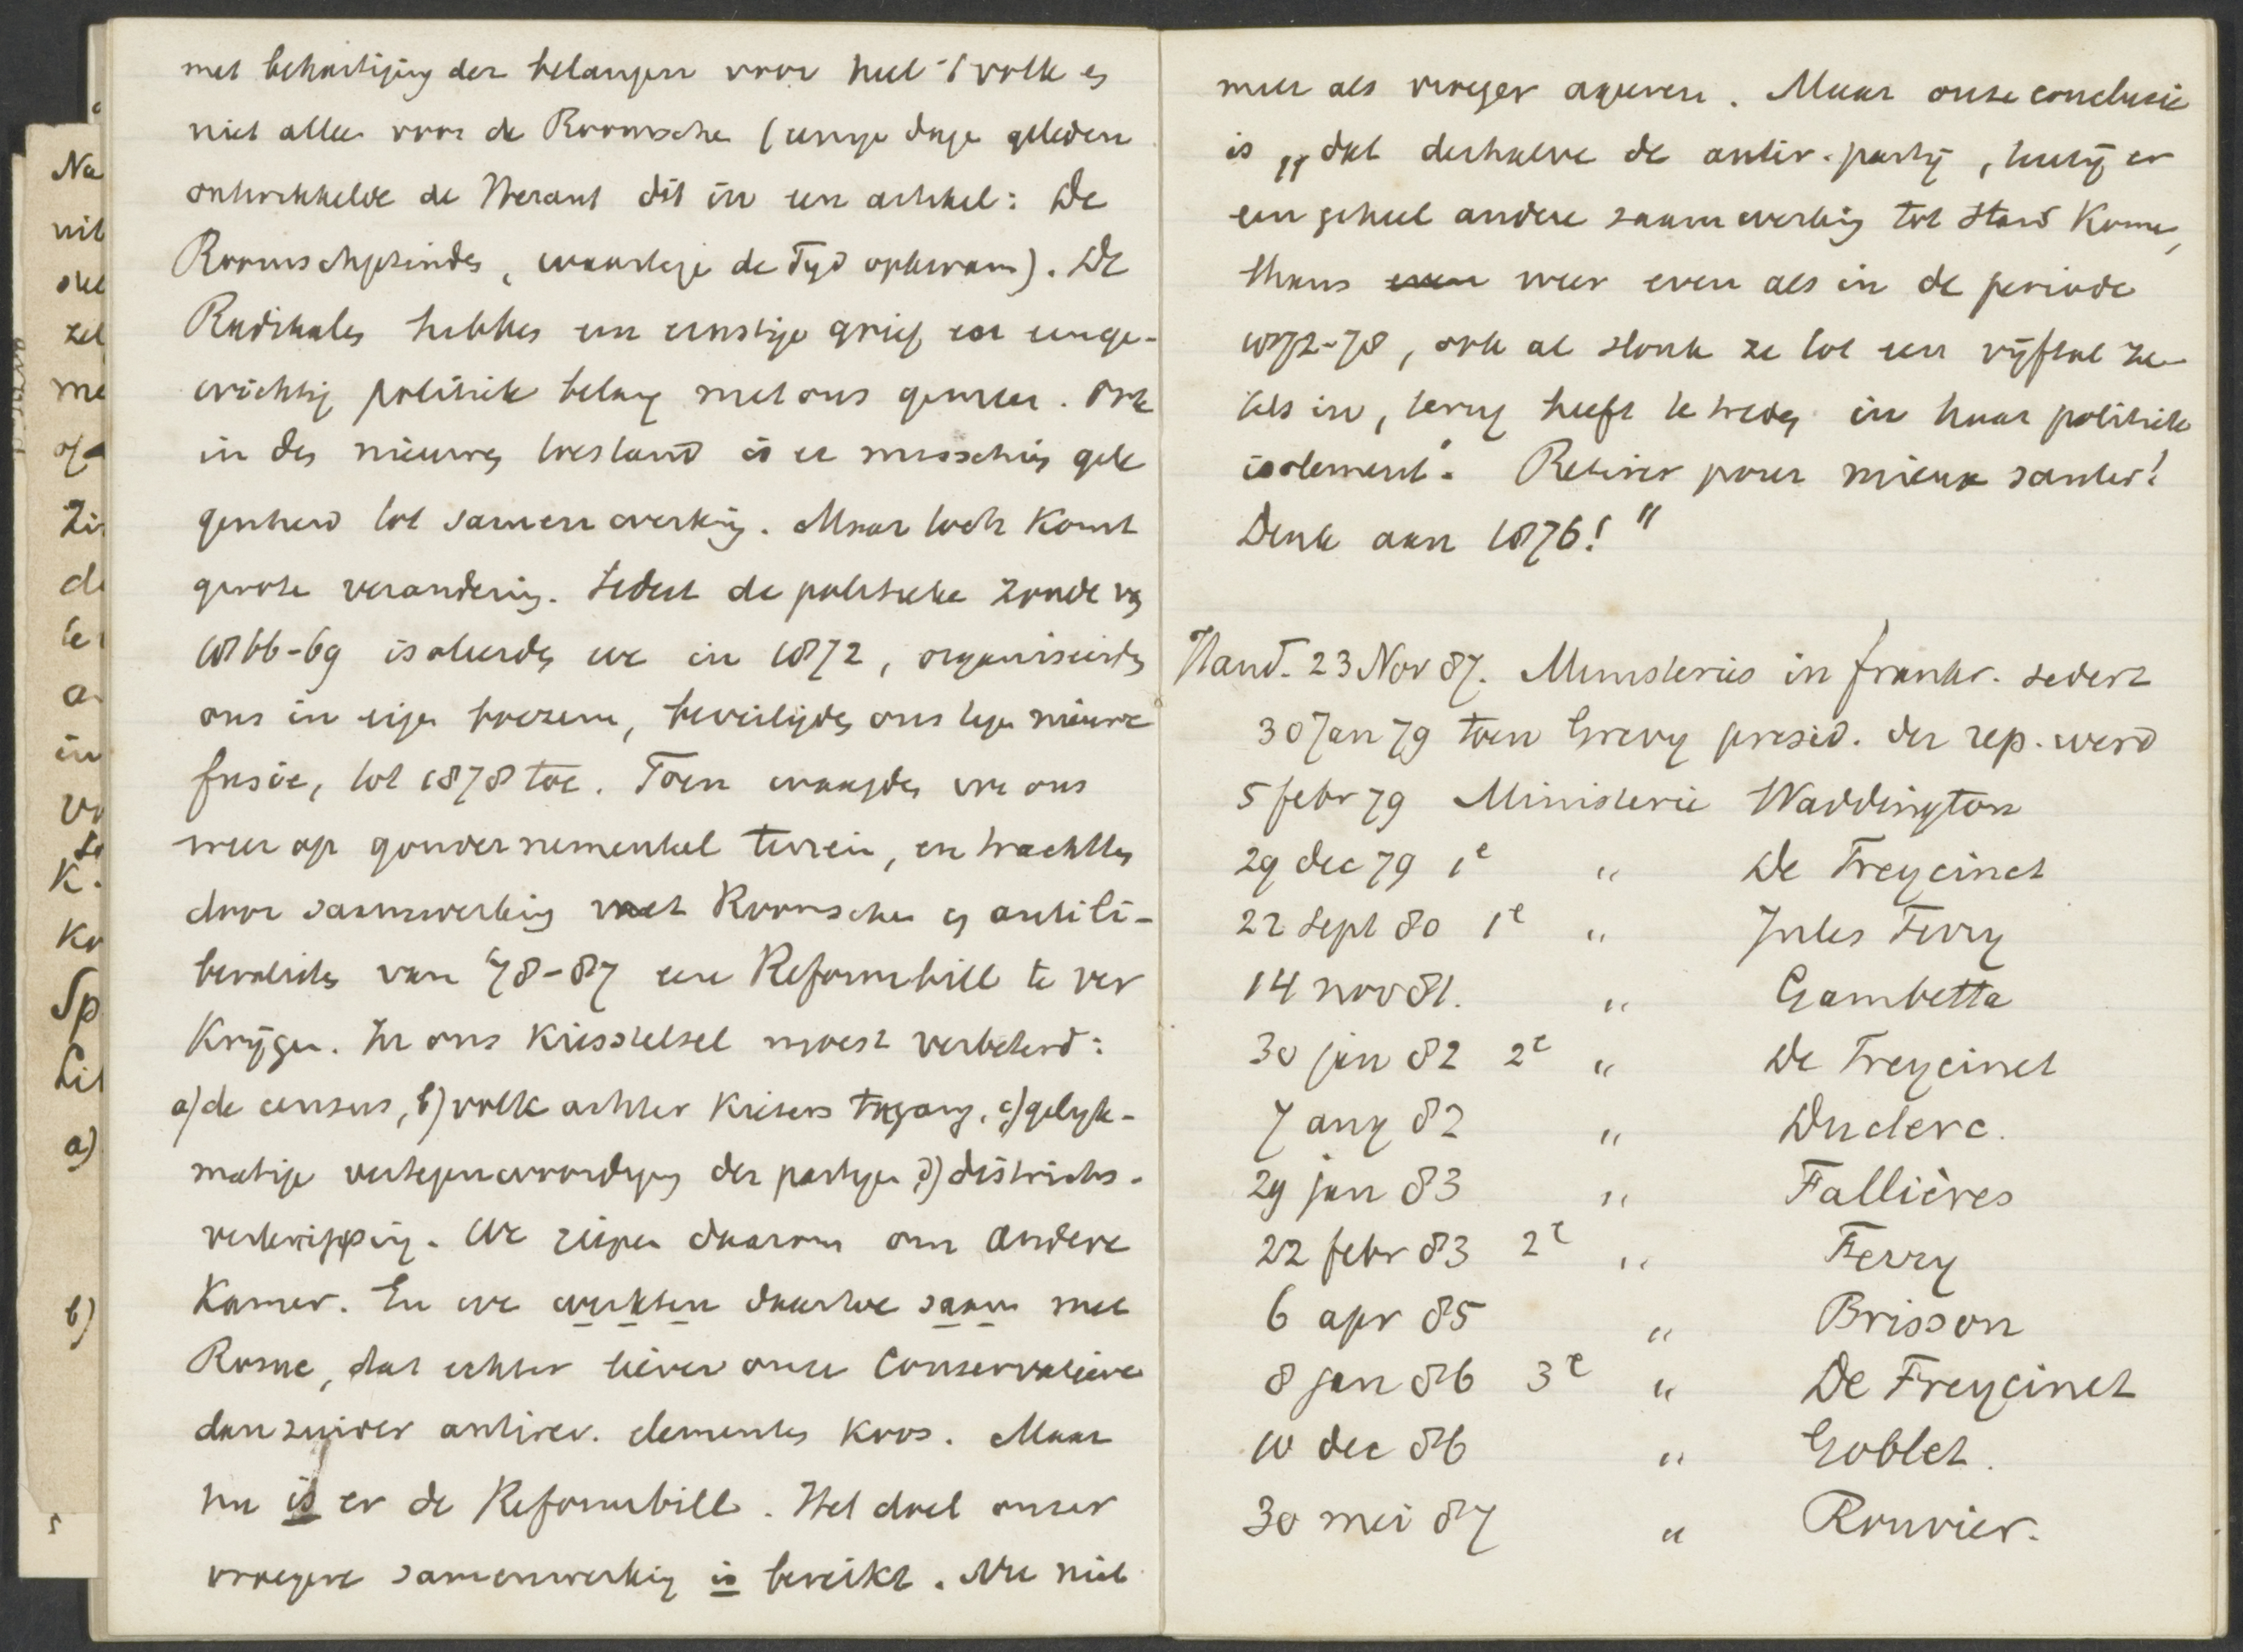 met behartiging der belangen voor heel 't volk en
niet allee voor de Roomsche (eenige dage geleden
ontwikkelde de Heraut dit in een artikel: De
Roomschgezinden, waartege de Tyd opkwam). De
Radikales hebben een ernstige grief en eenge-
wichtig politiek belang met ons gemeen. Ook
in den nieuwen toestand is er misschien gele
genheid tot samenwerking. Maar toch komt
groote verandering. Sedert de politieke zonde van
1866-69 isoleerden we in 1872, organiseerden
ons in eigen boezem, beveiligden ons tegen nieuwe
fusie, tot 1878 toe. Toen waagden we ons
weer op gouvernementeel terrein, en trachtten
door saamwerking met Roomschen en antili-
beralisten van '78-87 een Reformbill te ver
krijgen. In ons kiesstelsel moest verbeterd:
a) de census, b) volk achter kiesers toegang, c) gelijk-
matige vertegenwoordiging der partijen d) districts-
verknipping. We riepen daarom om andere
Kamer. En we werkten daartoe saam met
Rome, dat echter liever onze Conservatieve
dan zuiver antirev. elementen koos. Maar
nu is er de Reformbill. Het doel onzer
vroegere samenwerking is bereikt. Nu niet
meer als vroeger ageren. Maar onze conclusie
is „dat derhalve de antir. partij, tenzij er
een geheel andere saamwerking tot stand kome,
thans even weer even als in de periode
1872-78, ook al slonk ze tot een vijftal ze-
tels in, terug heeft te treden in haar politiek
isolement". Retirer pour mieux sauter!
Denk aan 1876!"
Stand. 23 Nov 87. Ministeries in frankr. sedert
30 Jan 79 toen Grevy presid. der rep. werd
5 febr 79 Ministerie Waddington
29 dec 79 1e " De Freycinet
22 Sept 80 1e " Jules Ferry
14 nov 81. " Gambetta
30 jan 82 2e " De Freycinet
7 aug 82 " Duclerc.
29 jan 83 " Fallières
22 febr 83 2e " Ferry
6 apr 85 " Brisson
8 jan 86 3e " De Freycinet
10 dec 86 " Goblet.
30 mei 87 " Rouvier.